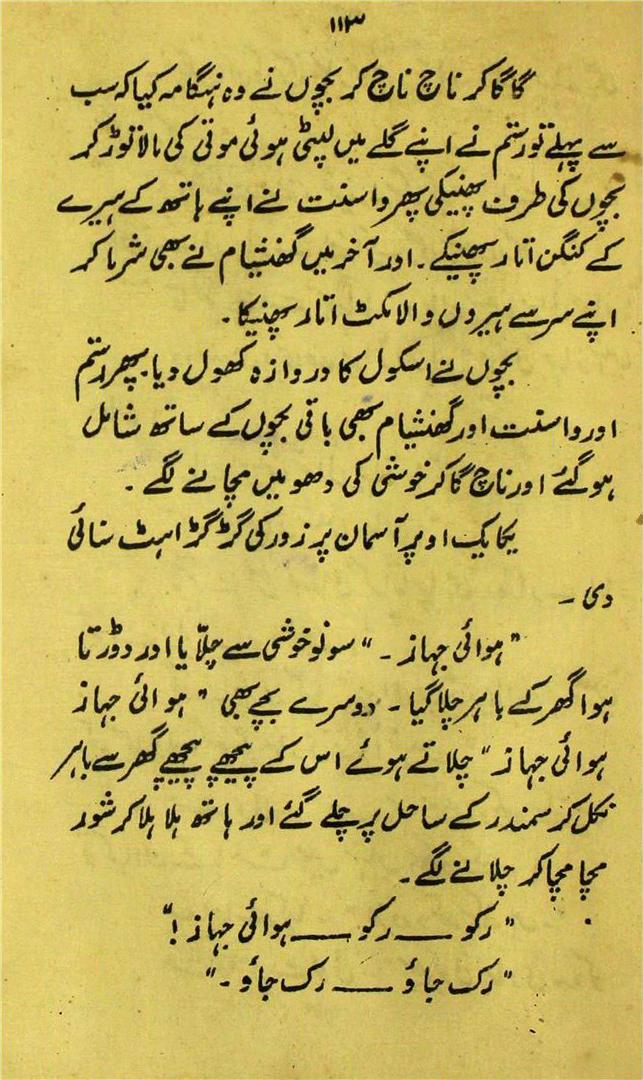 ۱۱۳
گا گا کر ناچ ناچ کر بچوں نے وہ ہنگامہ کیا کہ سب
سے پہلے تو رستم نے اپنے گلے میں لپٹی ہوئی موتی کی مالا توڑ کر
بچوں کی طرف پھینکی پھر واسنت نے اپنے ہاتھ کے ہیرے
کے کنگن اتار پھینکے۔ اور آخر میں گھنشیام نے بھی شرما کر
اپنے سر سے ہیروں والا مکٹ اتار پھینکا۔
بچوں نے اسکول کا دروازہ کھول دیا۔ پھر رستم
اور واسنت اور گھنشیام بھی باقی بچوں کے ساتھ شامل
ہو گئے اور ناچ گا کر خوشی کی دھومیں مچانے لگے۔
یکایک اوپر آسمان پر زور کی گڑگڑاہٹ سنائی
دی۔
"ہوائی جہاز۔" سونو خوشی سے چلّایا اور دوڑتا
ہوا گھر کے باہر چلا گیا۔ دوسرے بچے بھی "ہوائی جہاز
ہوائی جہاز" چلاتے ہوئے اس کے پیچھے پیچھے گھر سے باہر
نکل کر سمندر کے ساحل پر چلے گئے اور ہاتھ ہلا ہلا کر شور
مچا مچا کر چلانے لگے۔
"رکو ــــ رکو ــــ ہوائی جہاز!"
"رک جاؤ ــــ رک جاؤ۔"